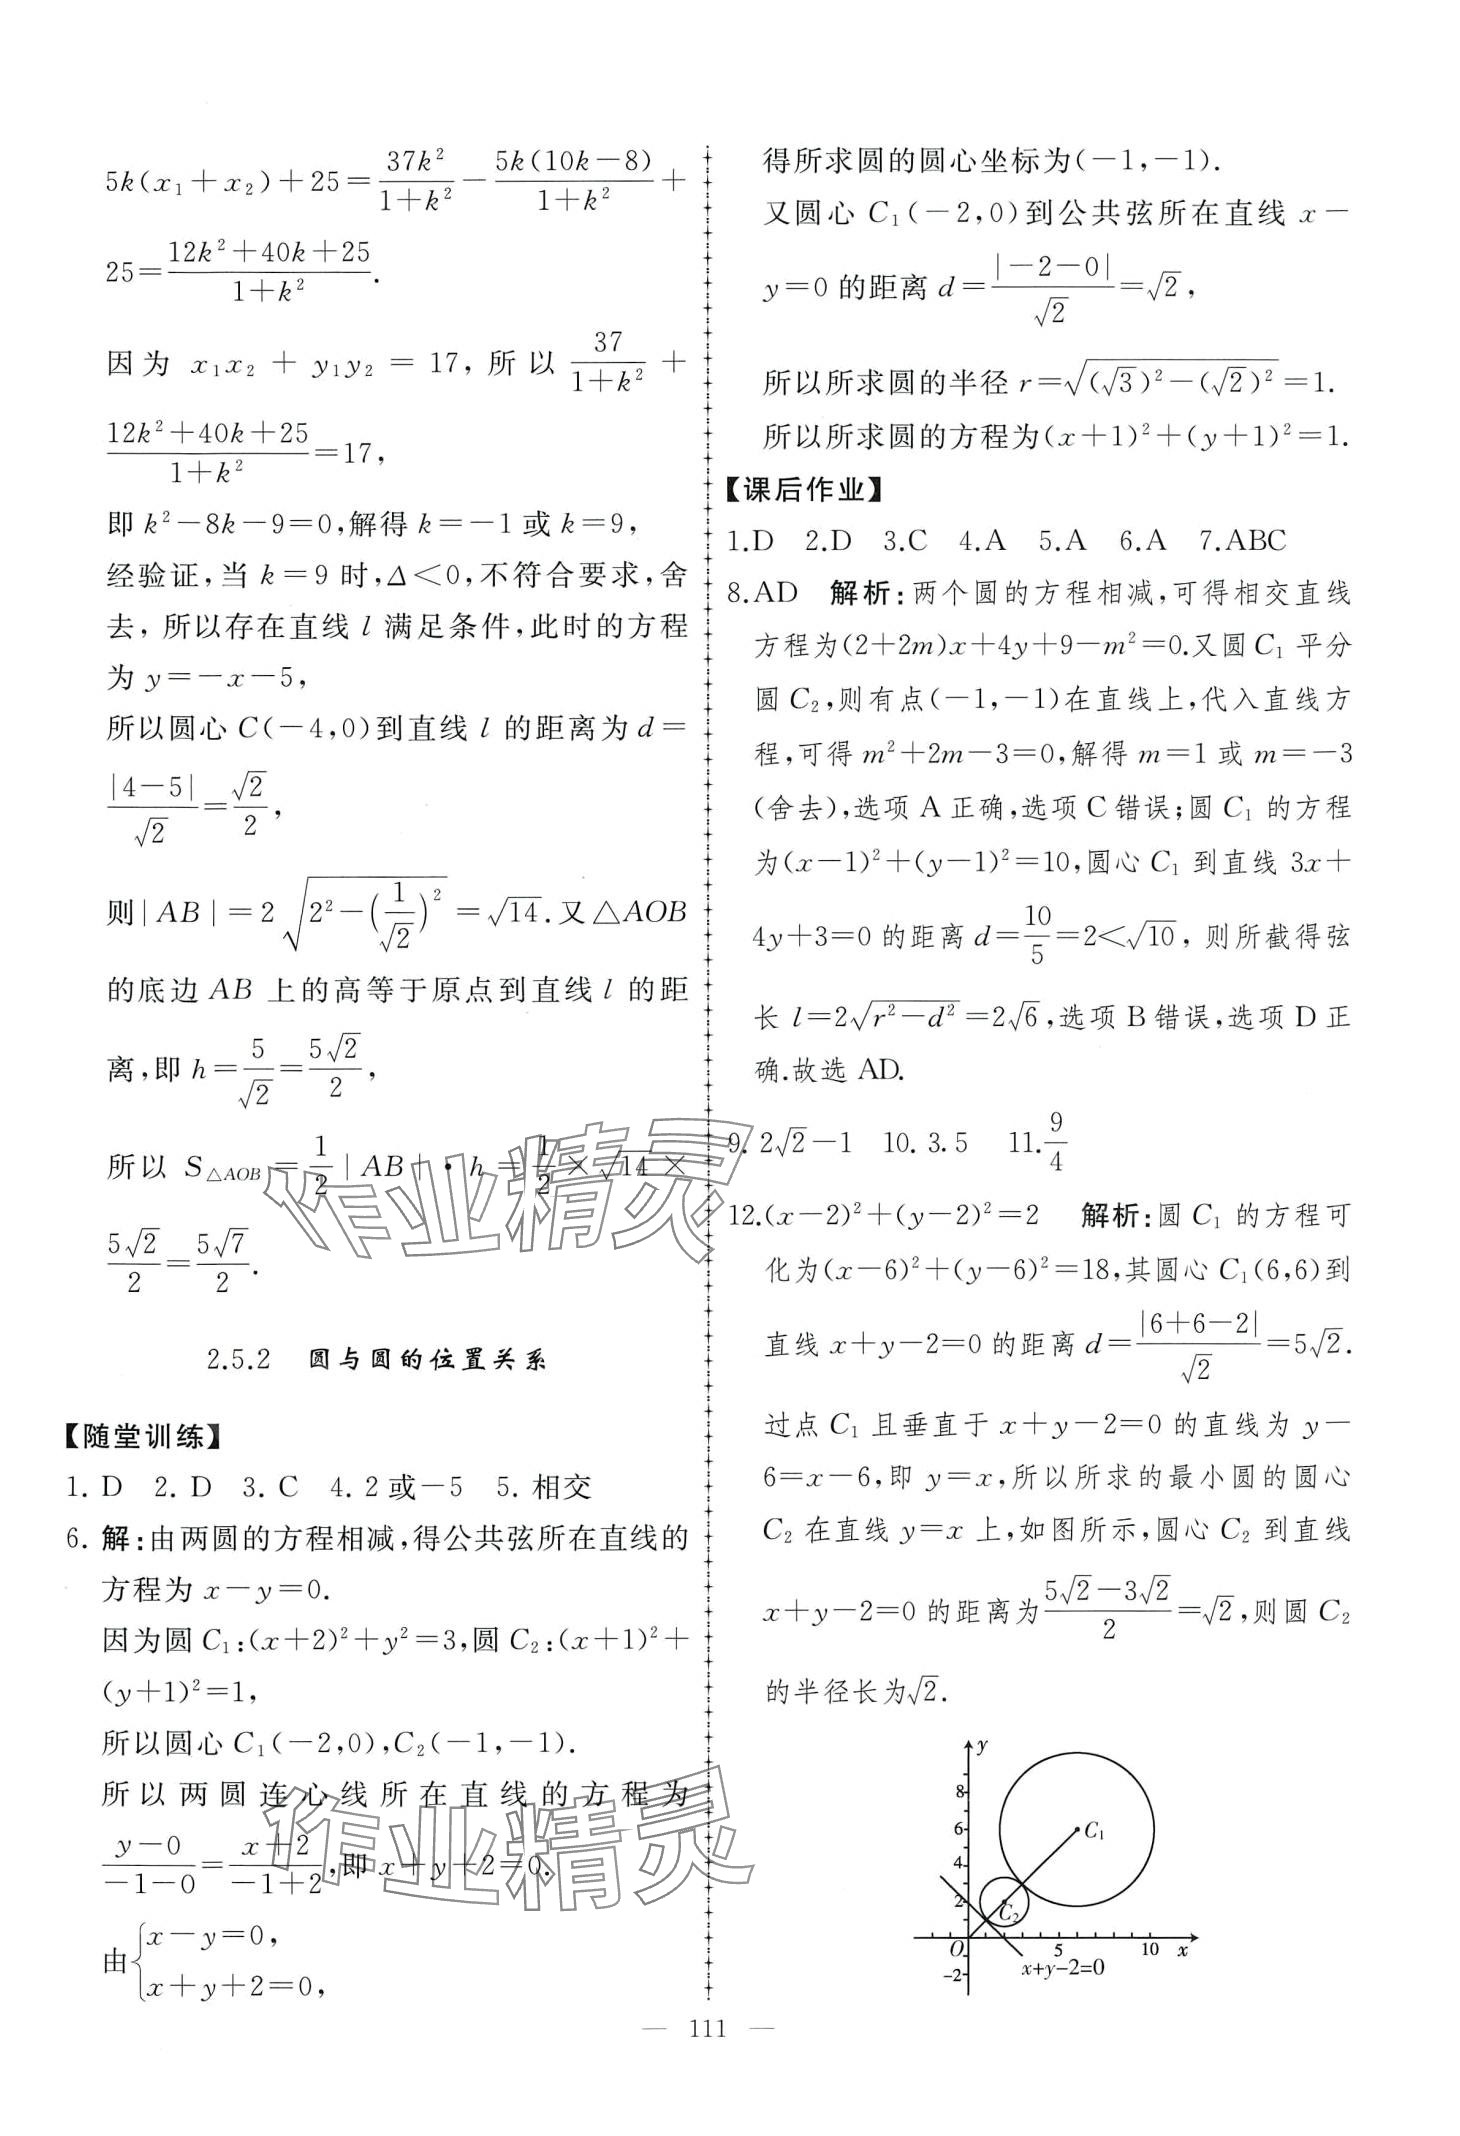 5k(x₁+x₂)+25=37k²/(1+k²)-5k(10k-8)/(1+k²)+
25=(12k²+40k+25)/(1+k²).
因为 x₁x₂+y₁y₂=17,所以 37/(1+k²)+
(12k²+40k+25)/(1+k²)=17,
即 k²-8k-9=0,解得 k=-1 或 k=9,
经验证,当 k=9 时,Δ<0,不符合要求,舍
去,所以存在直线 l 满足条件,此时的方程
为 y=-x-5,
所以圆心 C(-4,0)到直线 l 的距离为 d=
|4-5|/√2=√2/2,
则|AB|=2√(2²-(1/√2)²)=√14.又△AOB
的底边 AB 上的高等于原点到直线 l 的距
离,即 h=5/√2=5√2/2,
所以 S△AOB=1/2|AB|·h=1/2×√14×
5√2/2=5√7/2.
2.5.2 圆与圆的位置关系
【随堂训练】
1. D 2. D 3. C 4. 2 或-5 5. 相交
6. 解:由两圆的方程相减,得公共弦所在直线的
方程为 x-y=0.
因为圆 C₁:(x+2)²+y²=3,圆 C₂:(x+1)²+
(y+1)²=1,
所以圆心 C₁(-2,0),C₂(-1,-1).
所以两圆连心线所在直线的方程为
(y-0)/(-1-0)=(x+2)/(-1+2),即 x+y+2=0.
由{x-y=0,
x+y+2=0,
得所求圆的圆心坐标为(-1,-1).
又圆心 C₁(-2,0)到公共弦所在直线 x-
y=0 的距离 d=|-2-0|/√2=√2,
所以所求圆的半径 r=√((√3)²-(√2)²)=1.
所以所求圆的方程为(x+1)²+(y+1)²=1.
【课后作业】
1.D 2.D 3.C 4.A 5.A 6.A 7.ABC
8.AD 解析:两个圆的方程相减,可得相交直线
方程为(2+2m)x+4y+9-m²=0.又圆 C₁ 平分
圆 C₂,则有点(-1,-1)在直线上,代入直线方
程,可得 m²+2m-3=0,解得 m=1 或 m=-3
(舍去),选项 A 正确,选项 C 错误;圆 C₁ 的方程
为(x-1)²+(y-1)²=10,圆心 C₁ 到直线 3x+
4y+3=0 的距离 d=10/5=2<√10,则所截得弦
长 l=2√(r²-d²)=2√6,选项 B 错误,选项 D 正
确.故选 AD.
9. 2√2-1 10. 3.5 11. 9/4
12.(x-2)²+(y-2)²=2 解析:圆 C₁ 的方程可
化为(x-6)²+(y-6)²=18,其圆心 C₁(6,6)到
直线 x+y-2=0 的距离 d=|6+6-2|/√2=5√2.
过点 C₁ 且垂直于 x+y-2=0 的直线为 y-
6=x-6,即 y=x,所以所求的最小圆的圆心
C₂ 在直线 y=x 上,如图所示,圆心 C₂ 到直线
x+y-2=0 的距离为(5√2-3√2)/2=√2,则圆 C₂
的半径长为√2.
y
8
6
C₁
4
2
C₂
O
5
10
x
-2
x+y-2=0
111
作业精灵
作业精灵